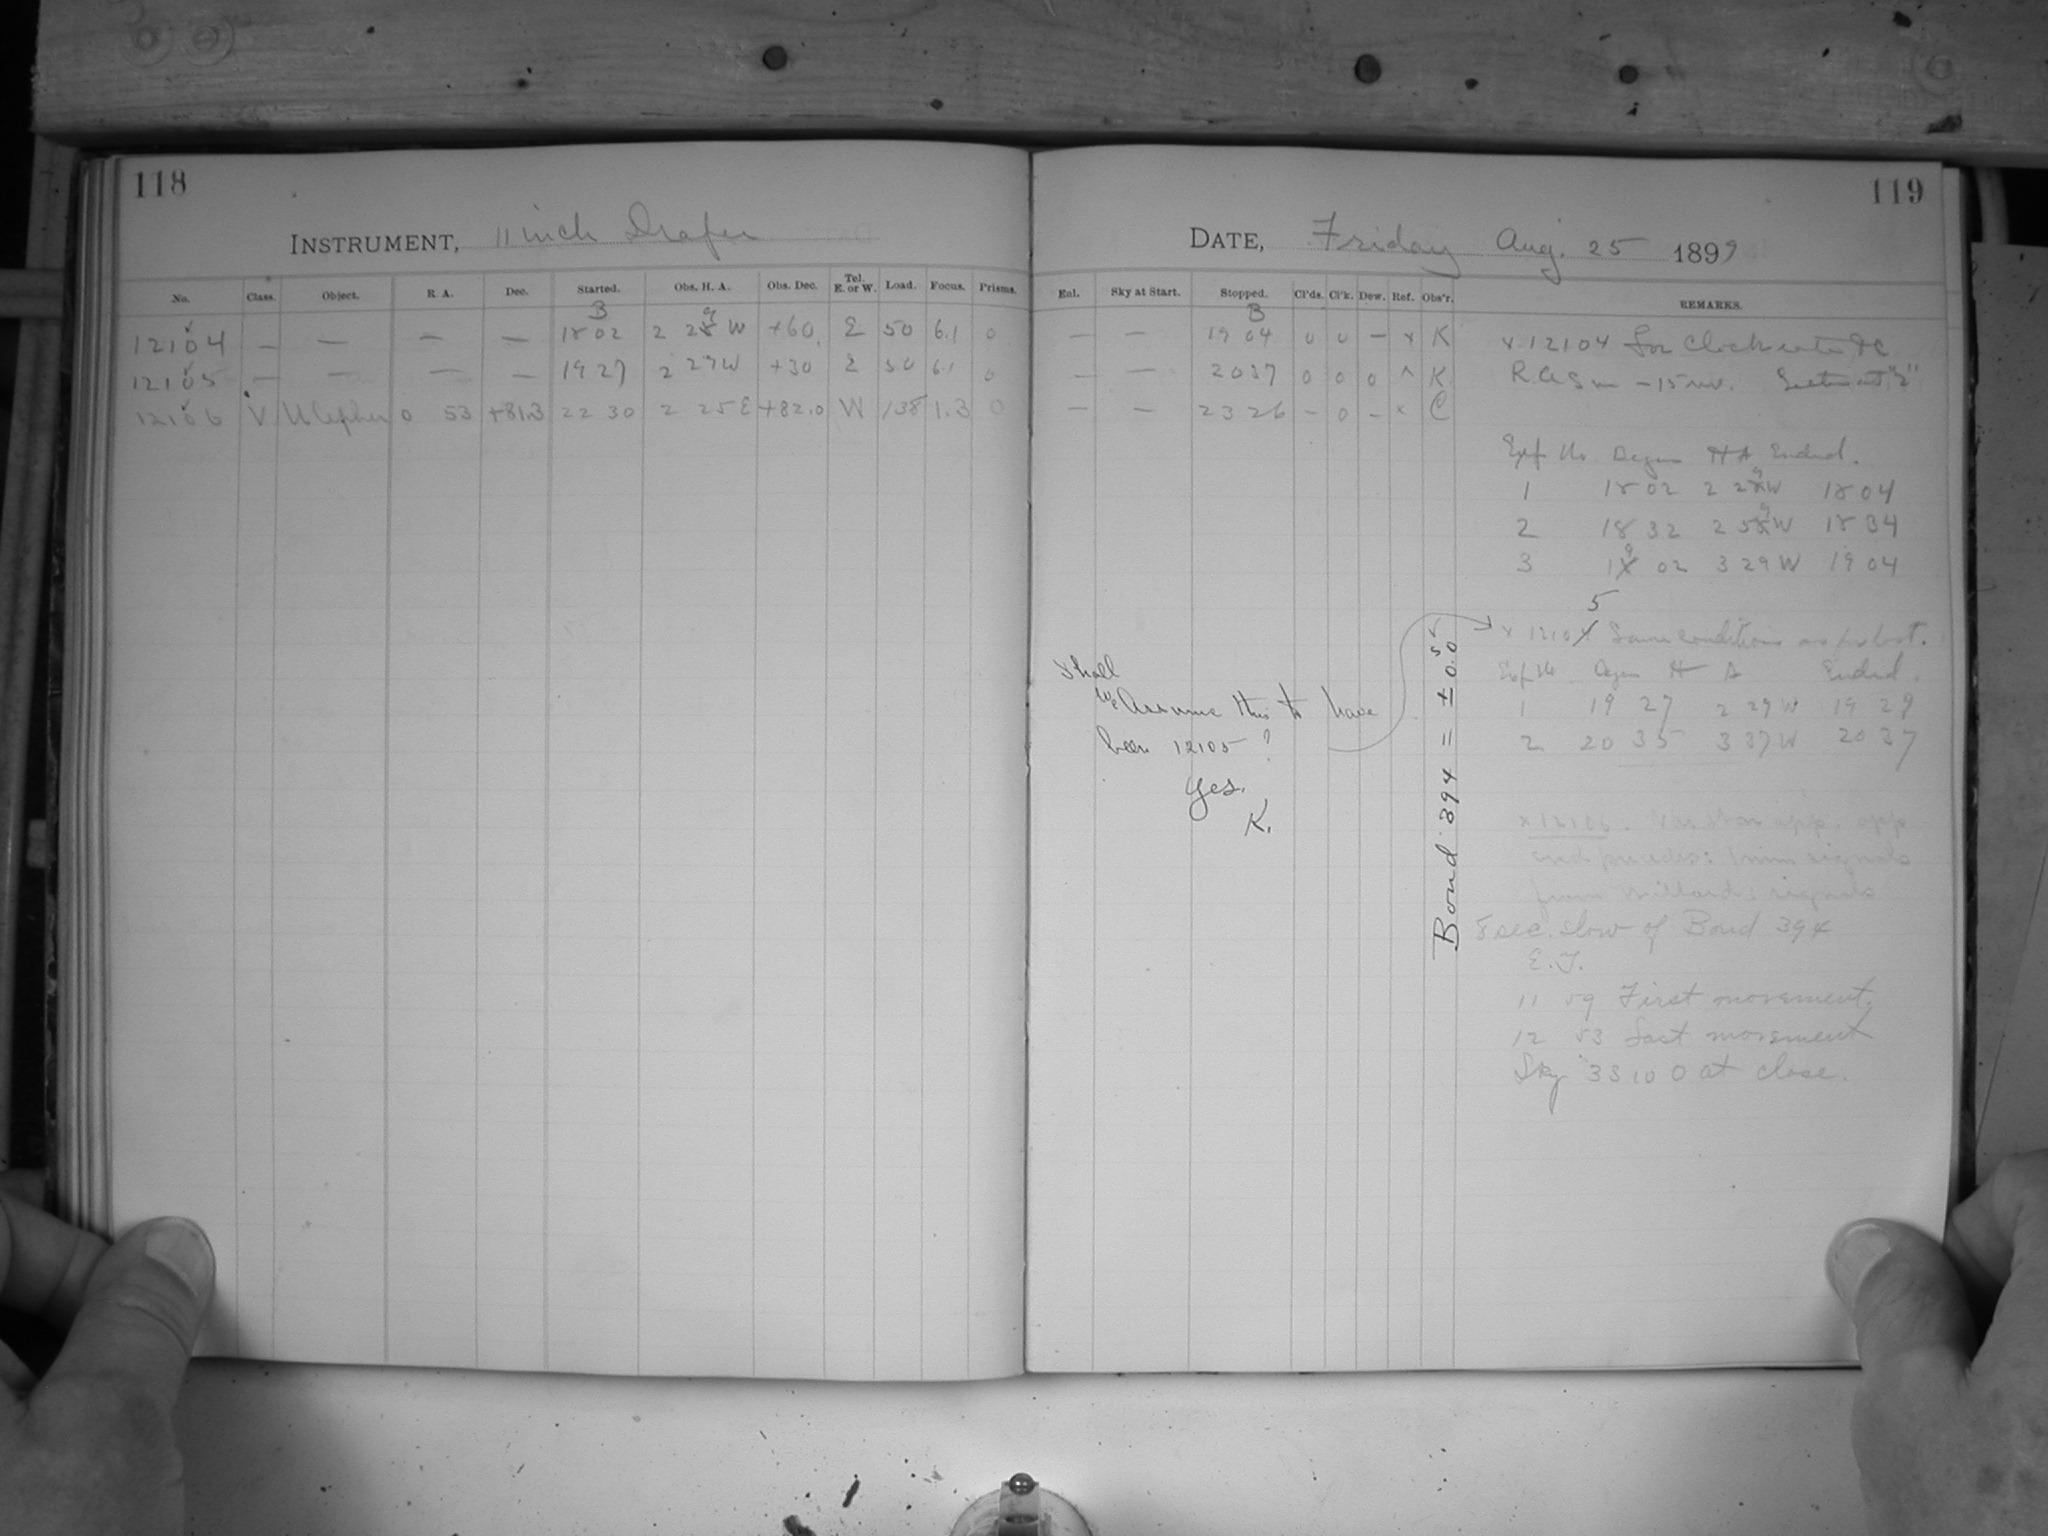 118
INSTRUMENT, 11 inch Draper
No. Class. Object. R. A. Dec. Started. Obs. H. A. Obs. Dec. Tel. E. or W. Load. Focus. Prisms.
B
12104 — — — — 18 02 2 29 W +60 E 50 6.1 0
12105 — — — — 19 27 2 29 W +30 E 50 6.1 0
12106 V U Cephei 0 53 +81.3 22 30 2 25 E +82.0 W 138 1.3 0
119
DATE, Friday Aug. 25 1899
Enl. Sky at Start. Stopped. Cl'ds. Cl'k. Dew. Ref. Obs'r. REMARKS.
B
— — 19 04 0 0 — x K
— — 20 37 0 0 0 x K
— — 23 26 – 0 – x C
x 12104 for Clock rate &c
R.A. Sm – 15 m.
Exp No Began H A Ended.
1 18 02 2 29 W 18 04
2 18 32 2 59 W 18 34
3 19 02 3 29 W 19 04
5
x 1210 Same conditions as
Exp No Began H A Ended.
1 19 27 2 29 W 19 29
2 20 35 3 37 W 20 37
Shall
we Assume this to have
been 12105 ?
Yes.
K.
Bond 394 = ± 0.0
x 12106. Var star app. opp
and precedes: 1 min signals
from Willard: signals
8 sec. slow of Bond 394
E.T.
11 59 First movement.
12 53 Last movement
Sky 33100 at close.